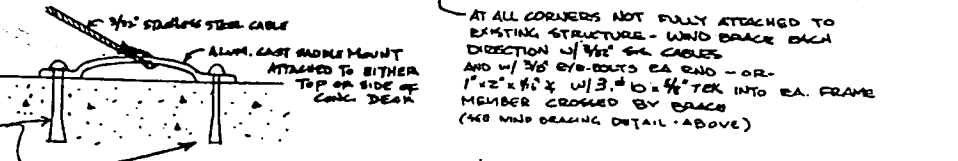 3/32" STAINLESS STEEL CABLE
ALUM. CAST SADDLE MOUNT
ATTACHED TO EITHER
TOP OR SIDE OF
CONC. DECK
AT ALL CORNERS NOT FULLY ATTACHED TO
EXISTING STRUCTURE - WIND BRACE EACH
DIRECTION W/ 3/32" S.S. CABLES
AND W/ 3/8" EYE-BOLTS EA END - OR -
1" x 2" x W/ 3. TEK INTO EA. FRAME
MEMBER CROSSED BY BRACE
(SEE WIND BRACING DETAIL · ABOVE)